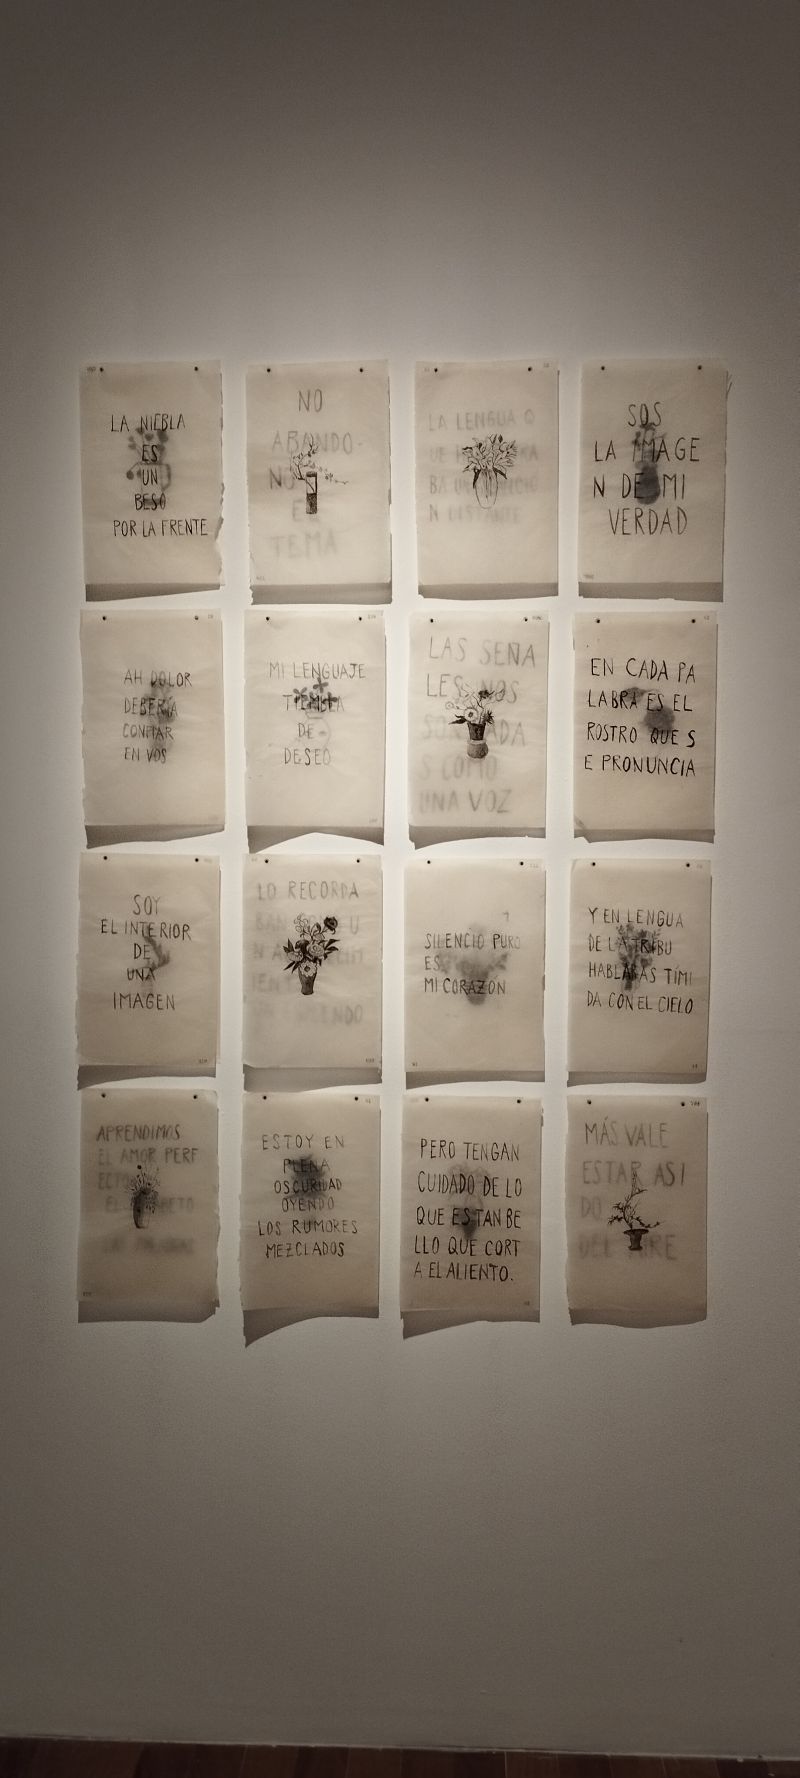 LA NIEBLA
ES
UN
BESO
POR LA FRENTE
NO
ABANDO-
NO
EL
TEMA
LA LENGUA Q
UE
BA UN
N DISTANTE
SOS
LA IMAGE
N DE MI
VERDAD
AH DOLOR
DEBERÍA
CONFIAR
EN VOS
MI LENGUAJE
TIEMBLA
DE
DESEO
LAS SEÑA
LES NOS
SON DADA
S COMO
UNA VOZ
EN CADA PA
LABRA ES EL
ROSTRO QUE S
E PRONUNCIA
SOY
EL INTERIOR
DE
UNA
IMAGEN
LO RECORDA
BAN U
N
SILENCIO PURO
ES
MI CORAZON
Y EN LENGUA
DE LA TRIBU
HABLARÁS TÍMI
DA CON EL CIELO
APRENDIMOS
EL AMOR PERF
ECTO
EL
LAS PALABRAS
ESTOY EN
PLENA
OSCURIDAD
OYENDO
LOS RUMORES
MEZCLADOS
PERO TENGAN
CUIDADO DE LO
QUE ES TAN BE
LLO QUE CORT
A EL ALIENTO.
MÁS VALE
ESTAR ASI
DO
DEL AIRE